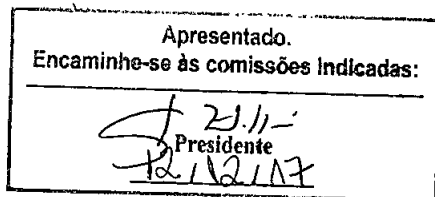 Apresentado.
Encaminhe-se às comissões indicadas:
Presidente
12/12/17